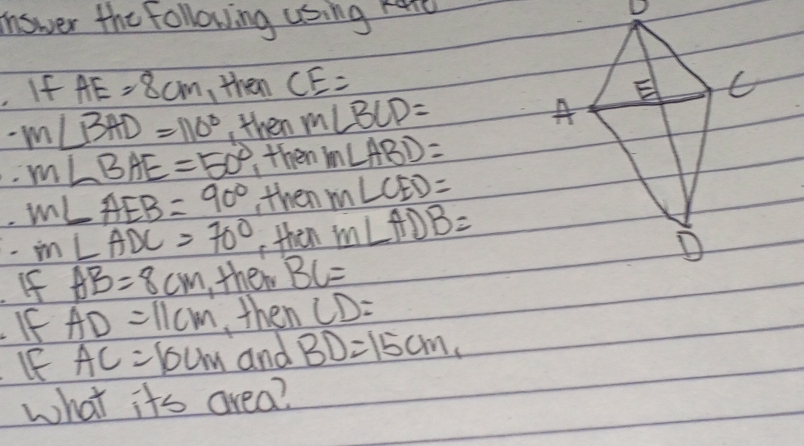 nswer the following using
. If AE = 8cm, then CE =
- m∠BAD = 110°, then m∠BCD =
. m∠BAE = 50°, then m∠ABD =
. m∠AEB = 90°, then m∠CED =
- m∠ADC = 70°, then m∠ADB =
. If AB = 8cm, then BC =
. If AD = 11cm, then CD =
. If AC = 10cm and BD = 15cm,
what its area?
B
A
E
C
D